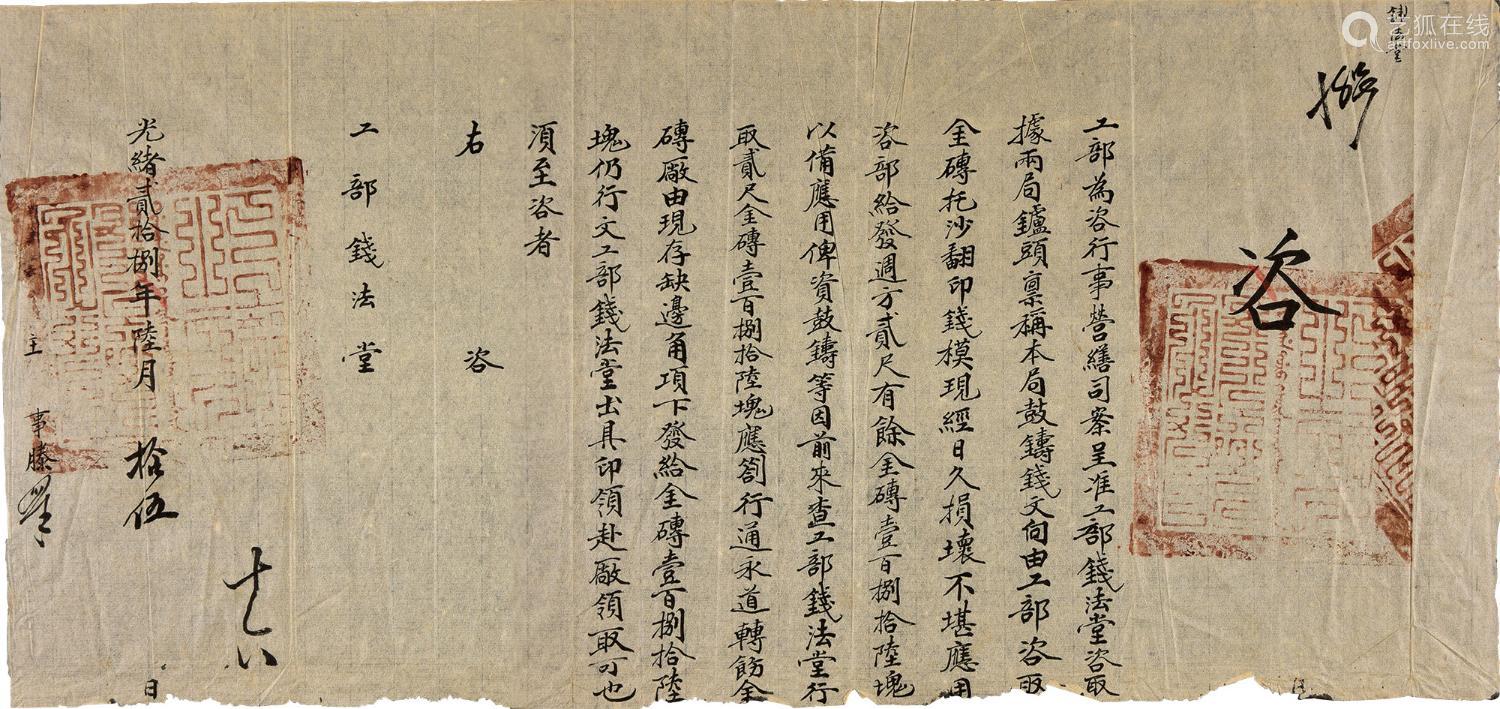 艺狐在线
artfoxlive.com
錢法堂
咨
工部為咨行事營繕司案呈准工部錢法堂咨取
據兩局鑪頭稟稱本局鼓鑄錢文向由工部咨取
金磚托沙翻印錢模現經日久損壞不堪應用
咨部給發週方貳尺有餘金磚壹百捌拾陸塊
以備應用俾資鼓鑄等因前來查工部錢法堂行
取貳尺金磚壹百捌拾陸塊應劄行通永道轉飭金
磚廠由現存缺邊角項下發給金磚壹百捌拾陸
塊仍行文工部錢法堂出具印領赴廠領取可也
須至咨者
右咨
工部錢法堂
光緒貳拾捌年陸月拾伍日
主事滕